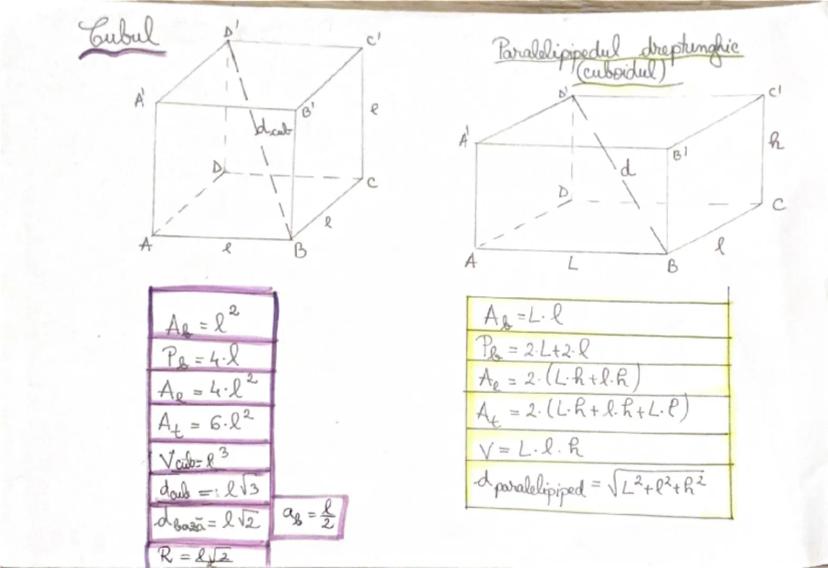 Cubul
D'
C'
A'
B'
d cub
l
D
C
A
l
B
l
A_b = l²
P_b = 4·l
A_l = 4·l²
A_t = 6·l²
V cub = l³
d cub = l√3
d bază = l√2
a_b = l/2
Paralelipipedul dreptunghic
(cuboidul)
D'
C'
A'
B'
h
d
D
C
A
L
B
l
A_b = L·l
P_b = 2·L+2·l
A_l = 2·(L·h+l·h)
A_t = 2·(L·h+l·h+L·l)
V = L·l·h
d paralelipiped = √L²+l²+h²